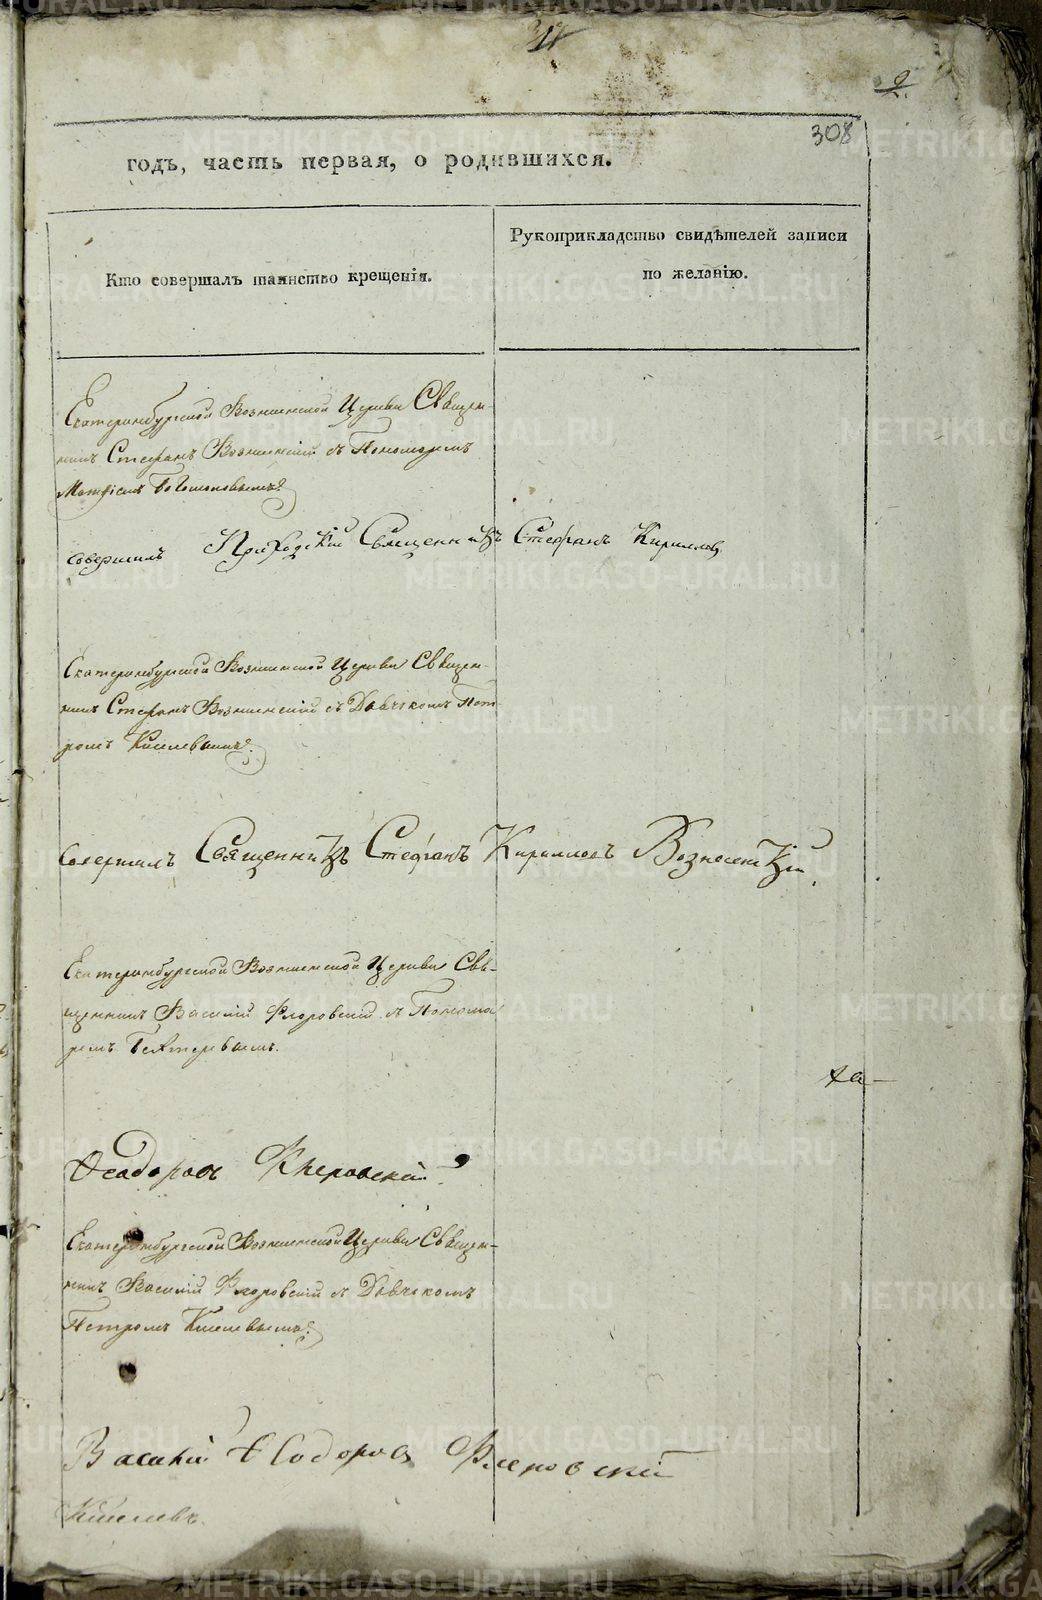 11
2.
308
годъ, часть первая, о родившихся.
Кто совершалъ таинство крещенія.
Рукоприкладство свидѣтелей записи
по желанію.
Екатеринбургской Вознесенской Церкви Священ-
никъ Стефанъ Вознесенскій съ Пономаремъ
Матфіемъ
совершилъ Приходскій Священникъ Стефанъ Кириллов
Екатеринбургской Вознесенской Церкви Священ-
никъ Стефанъ Вознесенскій съ Дьячкомъ Пет
ромъ Киселевымъ.
Совершилъ Священникъ Стефанъ Кирилловъ Вознесенскій.
Екатеринбургской Вознесенской Церкви Свя-
щенникъ Василій Флоровскій съ Понома
ремъ Бехтеревымъ.
Ѳеодоровъ Флеровскій
Екатеринбургской Вознесенской Церкви Священ-
никъ Василій Флоровскій съ Дьячкомъ
Петромъ Киселевымъ.
Василій Ѳеодоровъ Флеровскій
Киселевъ.
METRIKI.GASO-URAL.RU